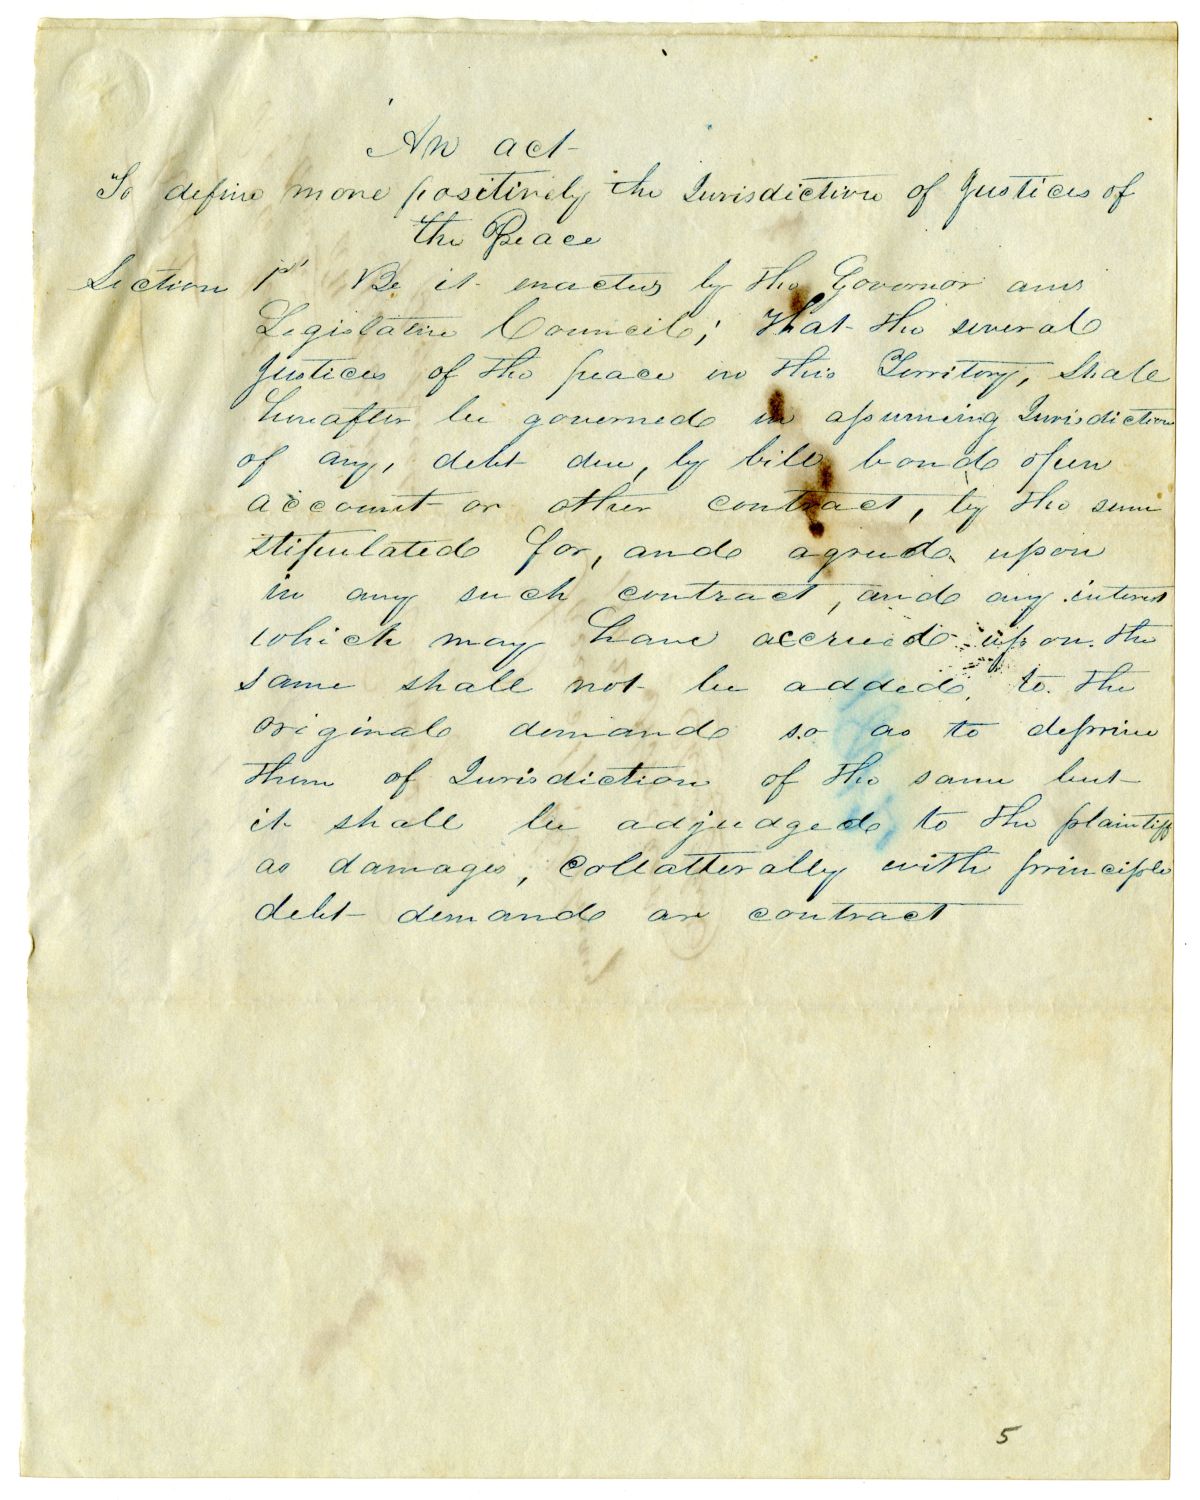 An act
To define more positively the Jurisdiction of Justices of
the Peace
Section 1st Be it enacted by the Governor and
Legislative Council; that the several
Justices of the peace in this Territory, shall
hereafter be governed in assuming Jurisdiction
of any, debt due, by bill bond open
account or other contract, by the sum
stipulated for, and agreed upon
in any such contract, and any interest
which may have accrued upon the
same shall not be added to the
original demand so as to deprive
them of Jurisdiction of the same but
it shall be adjudged to the plaintiff
as damages, collatterally with principle
debt demand or contract
5